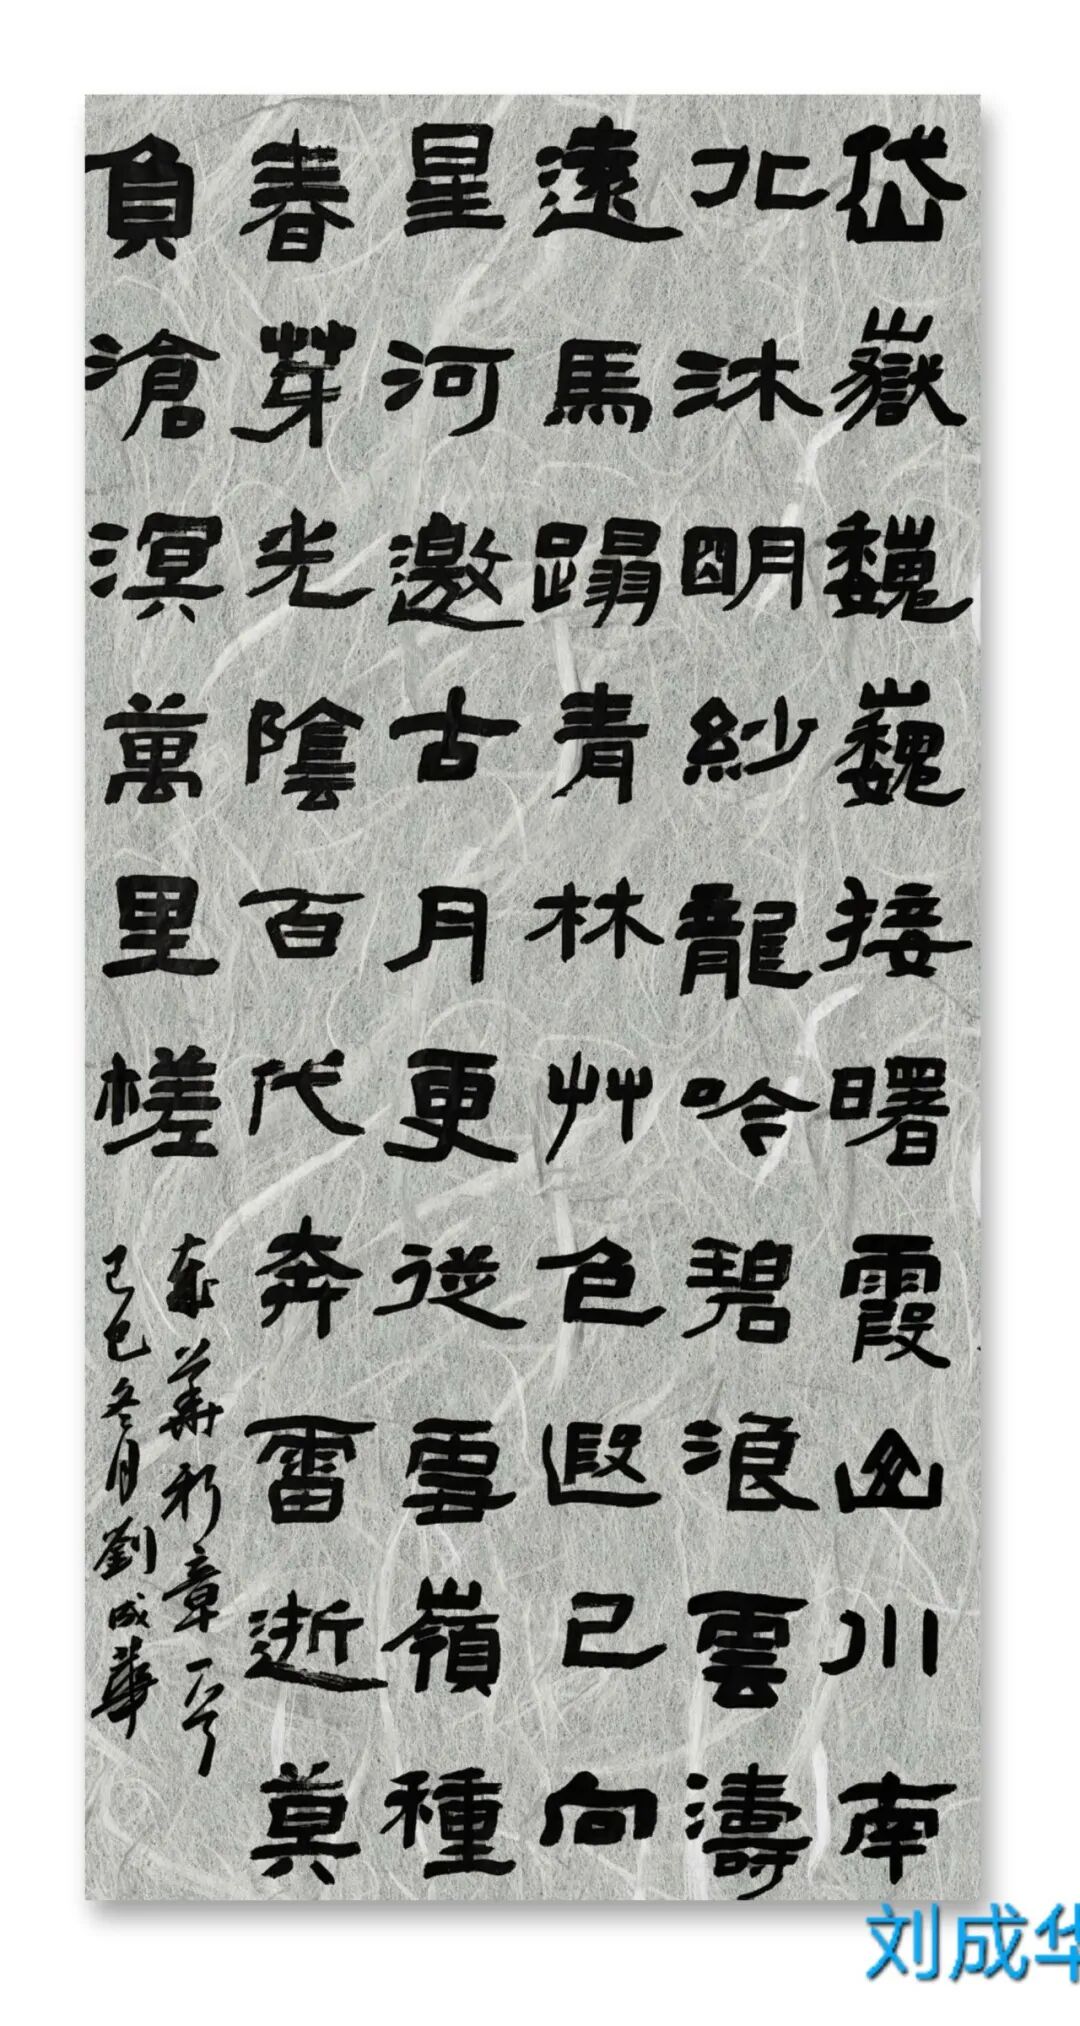 岱嶽巍巍接曙霞山川南
北沐明紗龍吟碧浪雲濤
遠馬蹋青林艸色遐已向
星河邀古月更從雪嶺種
春芽光陰百代奔雷逝莫
負滄溟萬里槎
華新章一首
己巳冬月劉成華
刘成华